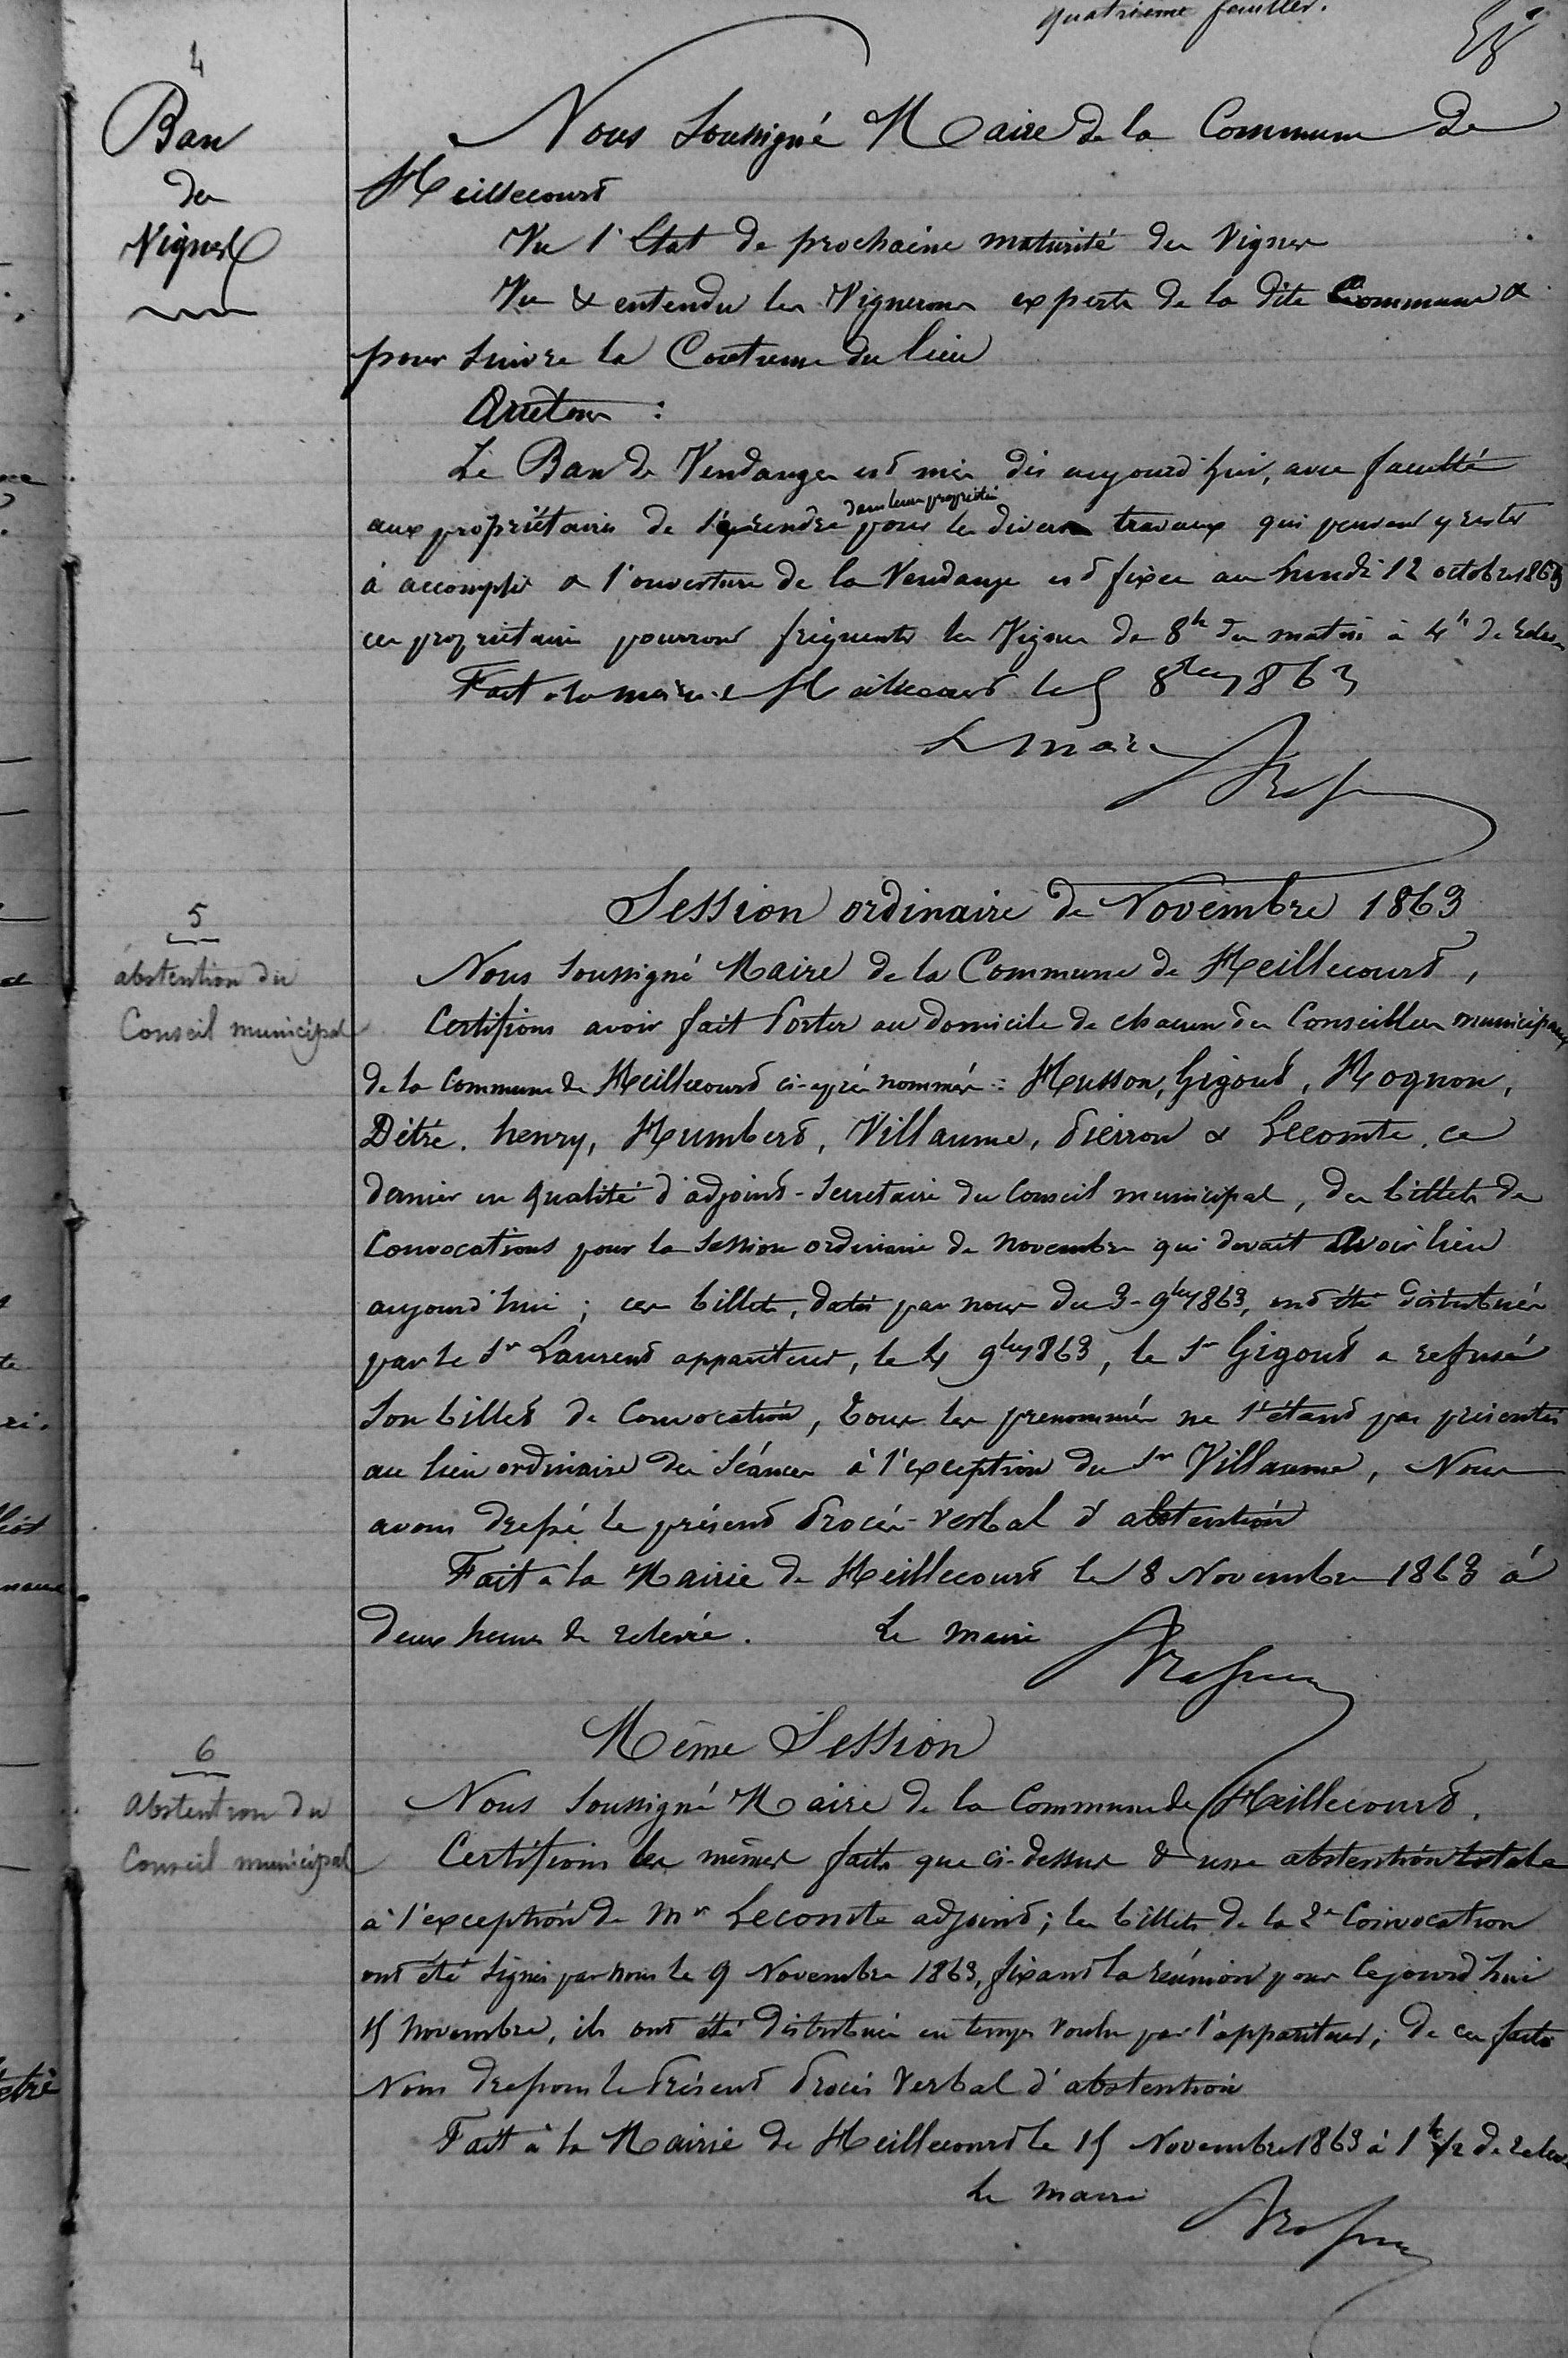 quatrième feuillet.
4
Ban
de
Vignes
Nous soussigné Maire de la Commune de
Heillecourt
Vu l'Etat de prochaine maturité des Vignes
Vu & entendu les Vignerons experts de la dite Commune &
pour suivre la Coutume du lieu
Arretons :
Le Ban de Vendanges est mis dès aujourd'hui, avec faculté
dans leurs propriétés
aux propriétaires de s'y rendre pour les divers travaux qui peuvent y rester
à accomplir & l'ouverture de la Vendange est fixée au Lundi 12 octobre 1863
ces propriétaires pourront fréquenter les Vignes de 8h du matin à 4h de relevée
Fait à la mairie Heillecourt le 5 8bre 1863
Le maire
5
abstention du
Conseil municipal
Session ordinaire de Novembre 1863
Nous soussigné Maire de la Commune de Heillecourt,
Certifions avoir fait Porter au domicile de chacun des Conseillers municipaux
de la Commune de Heillecourt ci-après nommés : Husson, Gigout, Hognon,
Dêtré. henry, Humbert, Villaume, Pierron & Lecomte, ce
dernier en qualité d'adjoint-Secretaire du Conseil municipal, des billets de
Convocations pour la Session ordinaire de novembre qui devait Avoir lieu
aujourd'hui ; ces billets, datés par nous du 3-9bre 1863, ont été distribués
par le Sr Laurent appariteur, le 4 9bre 1863, le Sr Gigout a refusé
Son billet de Convocation, Tous les prenommés ne s'étant pas présentés
au lieu ordinaire des Séances à l'exception du Sr Villaume, Nous
avons dressé le présent Procès-verbal d'abstention
Fait à la Mairie de Heillecourt le 8 Novembre 1863 à
deux heures de relevée. Le maire
6
Abstention du
Conseil municipal
Même Session
Nous Soussigné Maire de la Commune de Heillecourt.
Certifions les mêmes faits que ci-dessus & une abstention totale
à l'exception de Mr Lecomte adjoint ; les billets de la 2e Convocation
ont été signés par nous le 9 Novembre 1863, fixant la réunion pour cejourd'hui
15 novembre, ils ont été distribués en temps voulu par l'appariteur ; de ces faits
Nous dressons le Présent Procès Verbal d'abstention
Fait à la Mairie de Heillecourt le 15 Novembre 1863 à 1h 1/2 de relevée
Le maire